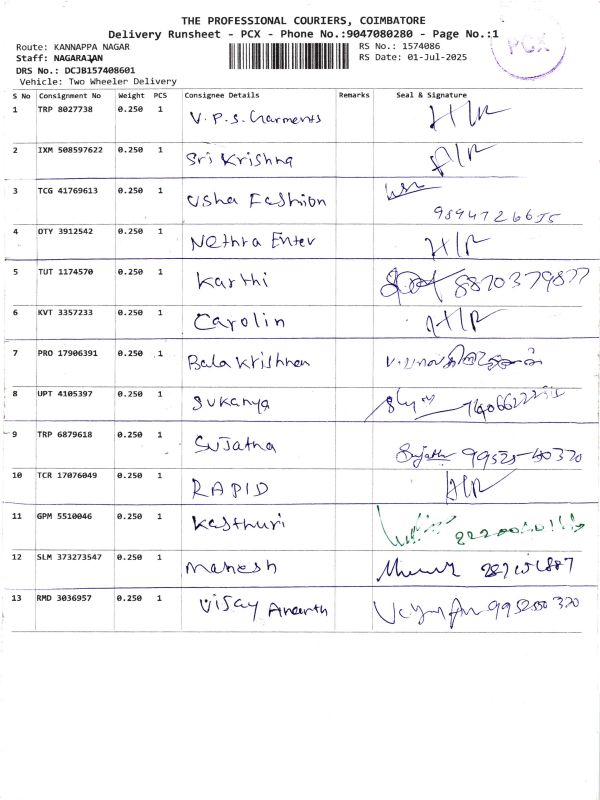 THE PROFESSIONAL COURIERS, COIMBATORE
Delivery Runsheet - PCX - Phone No.:9047080280 - Page No.:1
Route: KANNAPPA NAGAR
RS No.: 1574086
Staff: NAGARAJAN
RS Date: 01-Jul-2025
DRS No.: DCJB157408601
Vehicle: Two Wheeler Delivery
PCX
S No Consignment No Weight PCS Consignee Details Remarks Seal & Signature
1 TRP 8027738 0.250 1 V.P.S. Garments
2 IXM 508597622 0.250 1 Sri Krishna
3 TCG 41769613 0.250 1 Usha Fashion
4 OTY 3912542 0.250 1 Nethra Enter
5 TUT 1174570 0.250 1 Karthi 8870379877
6 KVT 3357233 0.250 1 Carolin
7 PRO 17906391 0.250 1 Bala Krishnan
8 UPT 4105397 0.250 1 Sukanya
9 TRP 6879618 0.250 1 Sujatha
10 TCR 17076049 0.250 1 RAPID
11 GPM 5510046 0.250 1 Kasthuri
12 SLM 373273547 0.250 1 Mahesh
13 RMD 3036957 0.250 1 Vijay Ananth